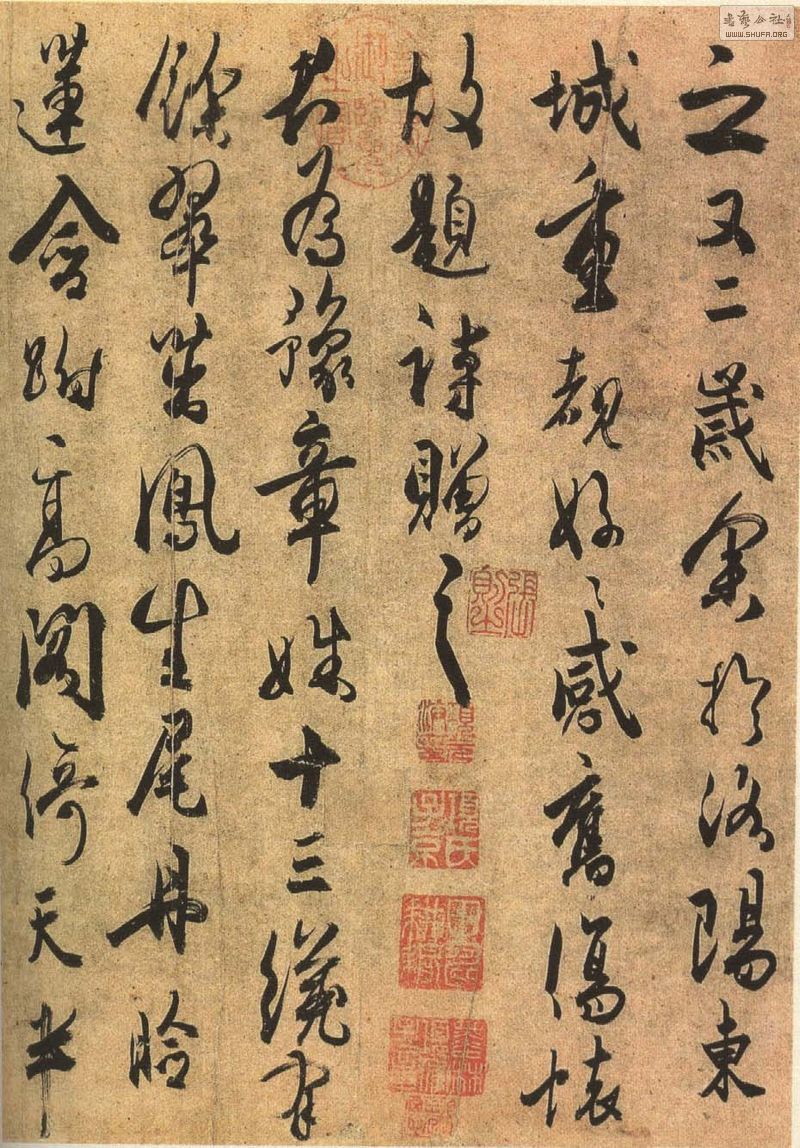 之又二歲余於洛陽東
城重覩好〻感舊傷懷
故題詩贈之
君為豫章姝十三纔有
餘翠茁鳳生尾丹臉
蓮含跗高閣倚天半
張則之
書藝公社
WWW.SHUFA.ORG